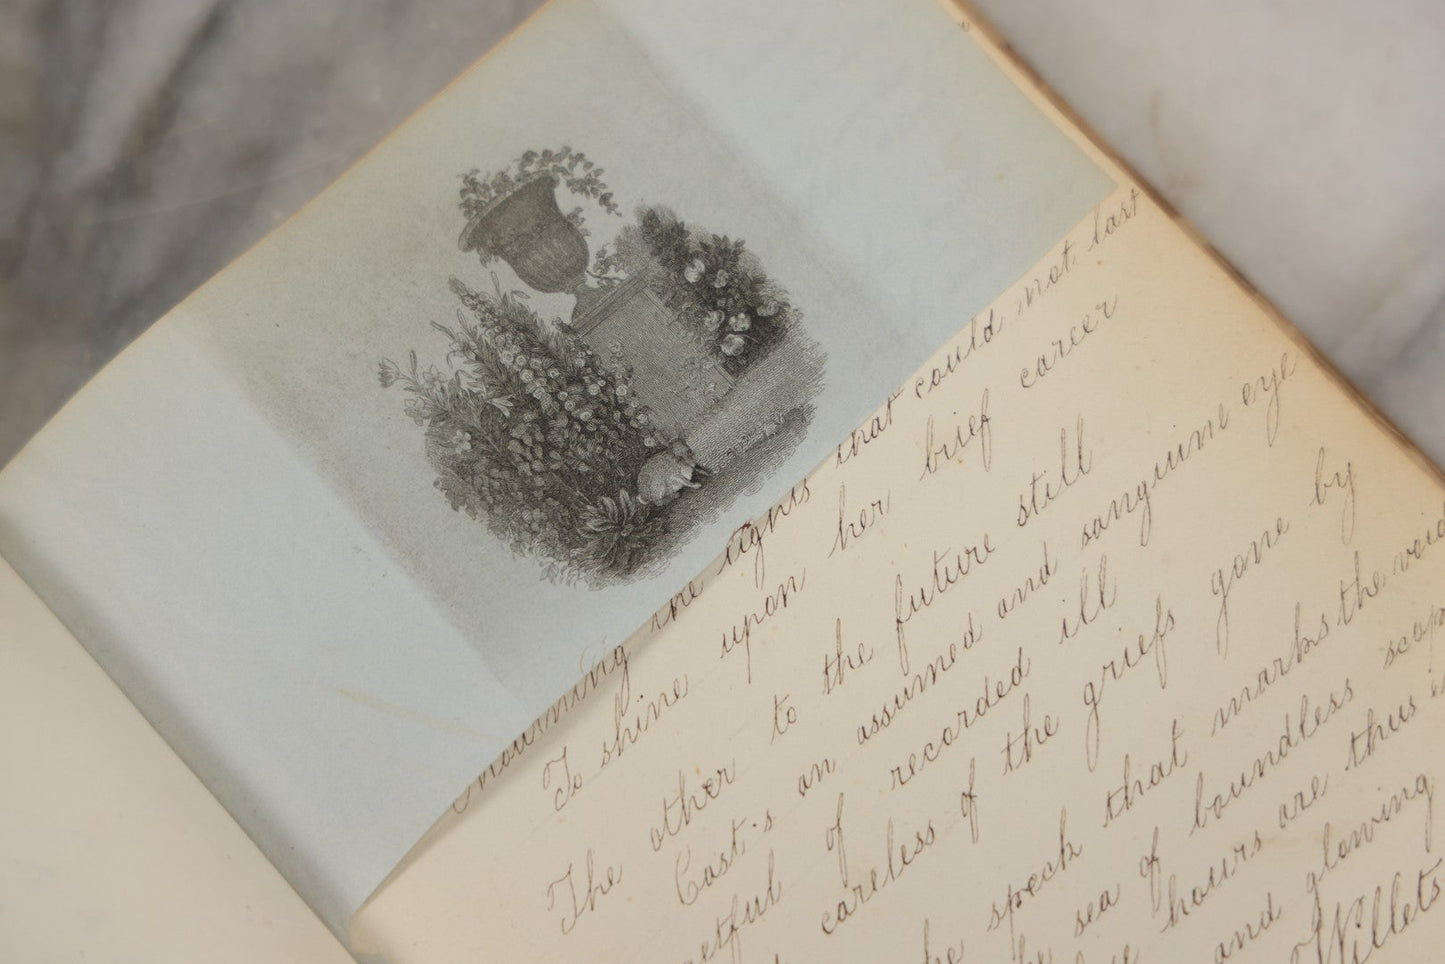 Mourning the lights that could not last
To shine upon her brief career
The other to the future still
Cast's an assumed and sanguine eye
of recorded ill
careless of the griefs gone by
speck that marks the void
sea of boundless scope
hours are thus
and glowing
Willets